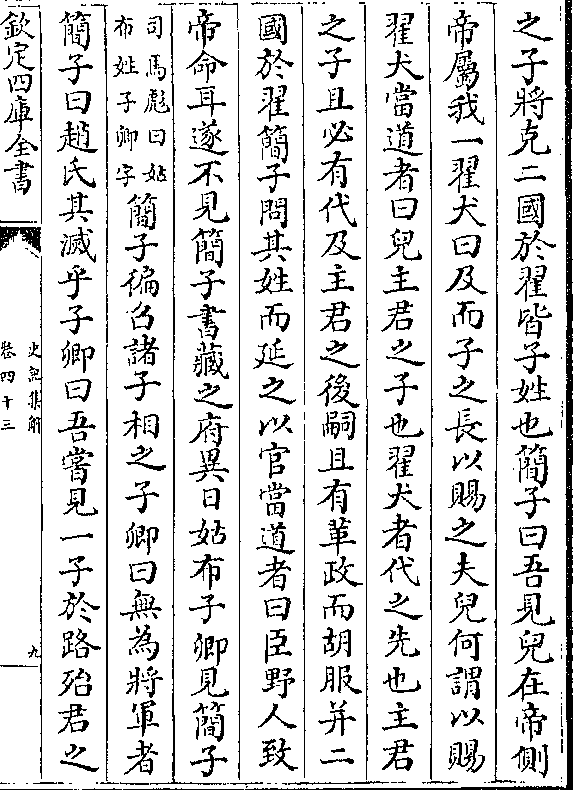 之子將克二國於翟皆子姓也簡子曰吾見兒在帝側
帝屬我一翟犬曰及而子之長以賜之夫兒何謂以賜
翟犬當道者曰兒主君之子也翟犬者代之先也主君
之子且必有代及主君之後嗣且有革政而胡服并二
國於翟簡子問其姓而延之以官當道者曰臣野人致
帝命耳遂不見簡子書藏之府異日姑布子卿見簡子
司馬彪曰姑
布姓子卿字
簡子徧召諸子相之子卿曰無為將軍者
簡子曰趙氏其滅乎子卿曰吾嘗見一子於路殆君之
欽定四庫全書
史記集解
卷四十三
九